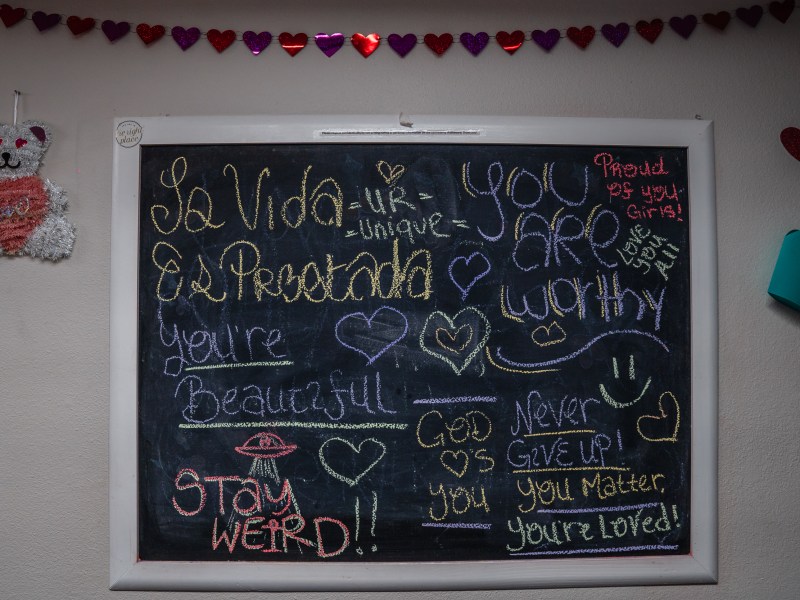 La Vida
Es Prestada
=UR=
=unique=
You
are
worthy
Proud
of you
Girls!
Love
you
All
You're
Beautiful
GOD
♡'s
you
Never
Give up!
you Matter,
you're Loved!
Stay
WEIRD!!